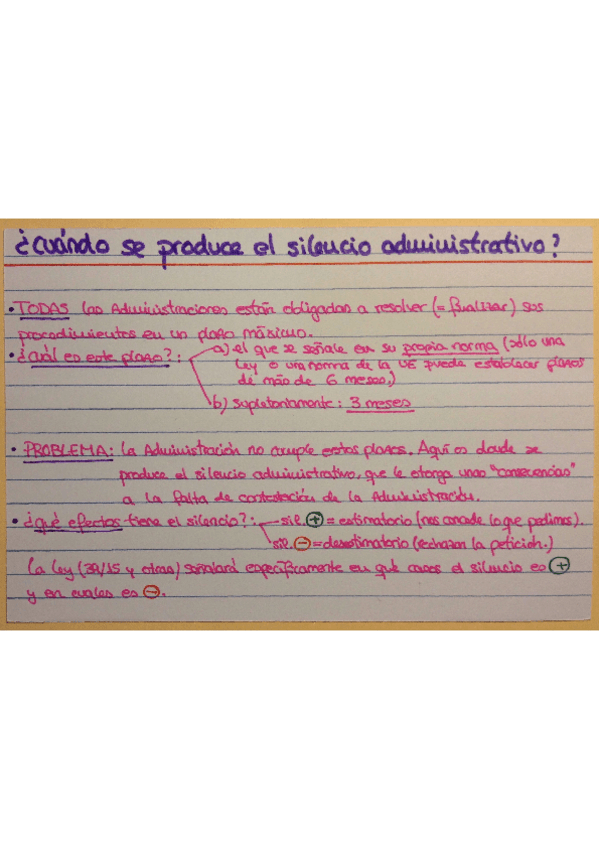 ¿cuándo se produce el silencio administrativo?
• TODAS las Administraciones están obligadas a resolver (= finalizar) sus
procedimientos en un plazo máximo.
• ¿cuál es este plazo?: a) el que se señale en su propia norma (sólo una
ley o una norma de la UE puede establecer plazos
de más de 6 meses.)
b) supletoriamente: 3 meses
• PROBLEMA: la Administración no cumple estos plazos. Aquí es donde se
produce el silencio administrativo, que le otorga unas "consecuencias"
a la falta de contestación de la Administración.
• ¿qué efectos tiene el silencio?: sil. + = estimatorio (nos concede lo que pedimos).
sil. - = desestimatorio (rechazan la petición.)
La ley (39/15 y otras) señalará específicamente en qué casos el silencio es +
y en cuáles es -.